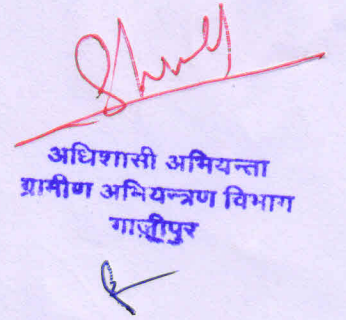 अधिशासी अभियन्ता
ग्रामीण अभियन्त्रण विभाग
गाज़ीपुर